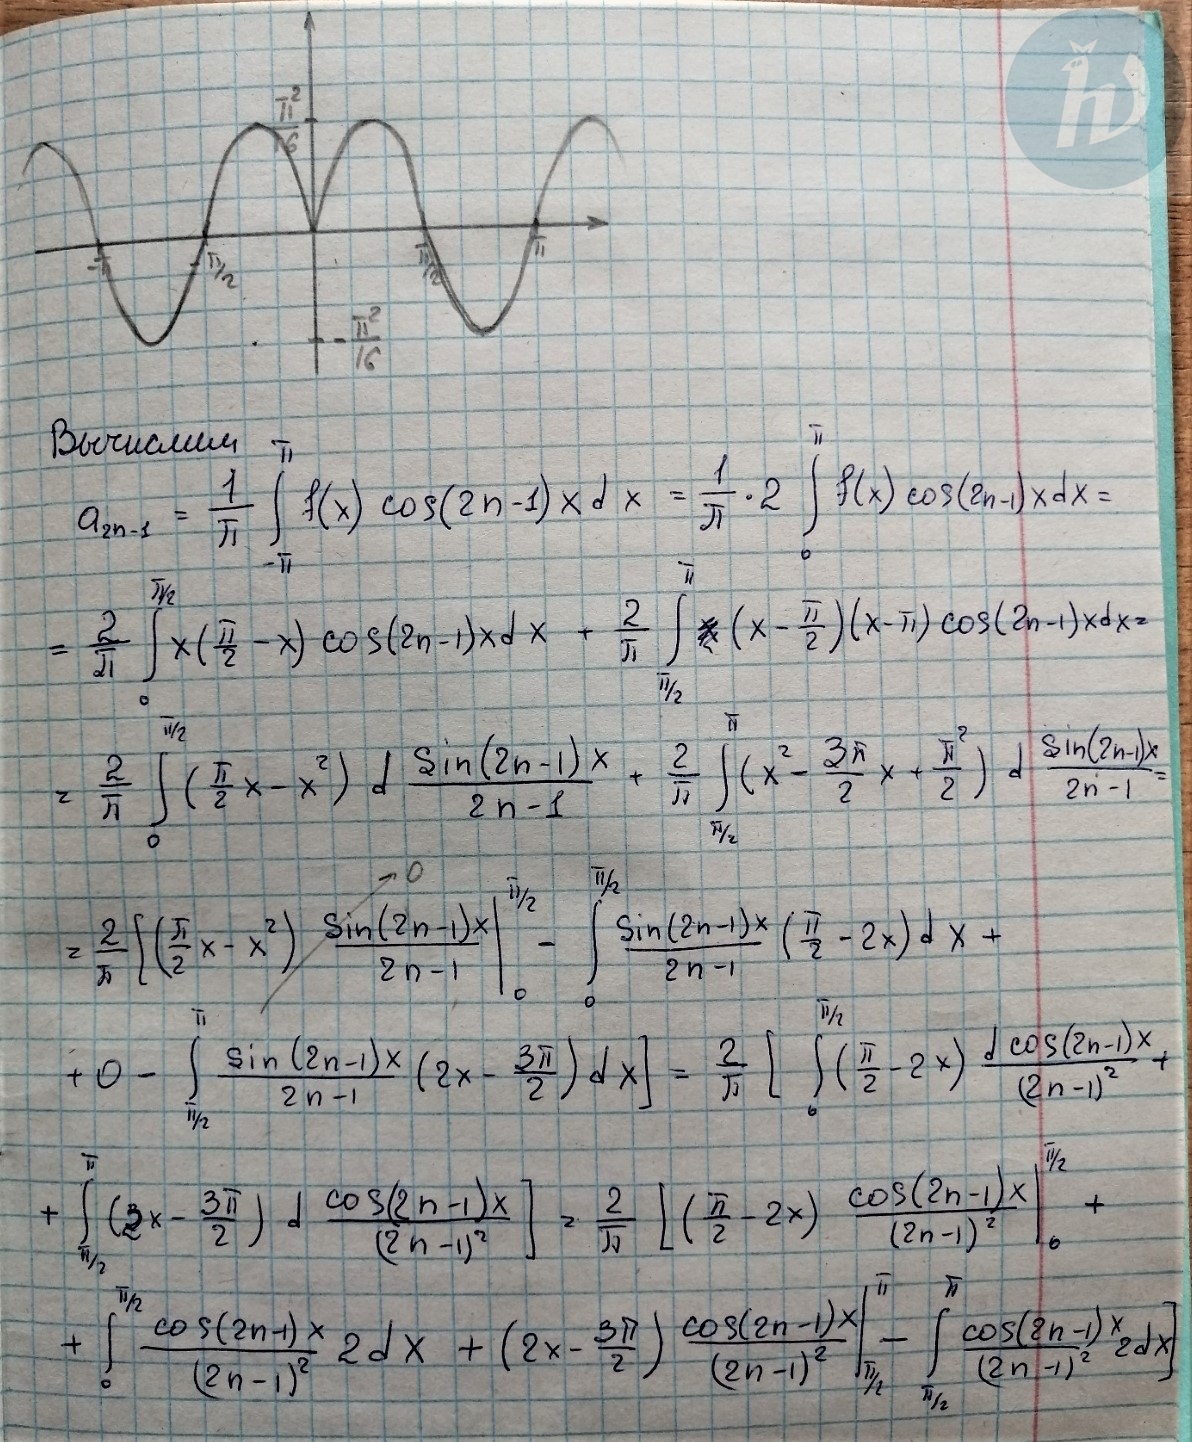 π²/6
-π
-π/2
π/2
π
-π²/16
Вычислим
a₂ₙ₋₁ = 1/π ∫_{-π}^{π} f(x) cos(2n-1)x dx = 1/π · 2 ∫_0^π f(x) cos(2n-1)x dx =
= 2/π ∫_0^{π/2} x(π/2 - x) cos(2n-1)x dx + 2/π ∫_{π/2}^π (x - π/2)(x - π) cos(2n-1)x dx =
= 2/π ∫_0^{π/2} (π/2 x - x²) d sin(2n-1)x/(2n-1) + 2/π ∫_{π/2}^π (x² - 3π/2 x + π²/2) d sin(2n-1)x/(2n-1) =
= 2/π [(π/2 x - x²) sin(2n-1)x/(2n-1) |_0^{π/2} → 0 - ∫_0^{π/2} sin(2n-1)x/(2n-1) (π/2 - 2x) dx +
+ 0 - ∫_{π/2}^π sin(2n-1)x/(2n-1) (2x - 3π/2) dx] = 2/π [∫_0^{π/2} (π/2 - 2x) d cos(2n-1)x/(2n-1)² +
+ ∫_{π/2}^π (2x - 3π/2) d cos(2n-1)x/(2n-1)²] = 2/π [(π/2 - 2x) cos(2n-1)x/(2n-1)² |_0^{π/2} +
+ ∫_0^{π/2} cos(2n-1)x/(2n-1)² 2dx + (2x - 3π/2) cos(2n-1)x/(2n-1)² |_{π/2}^π - ∫_{π/2}^π cos(2n-1)x/(2n-1)² 2dx]